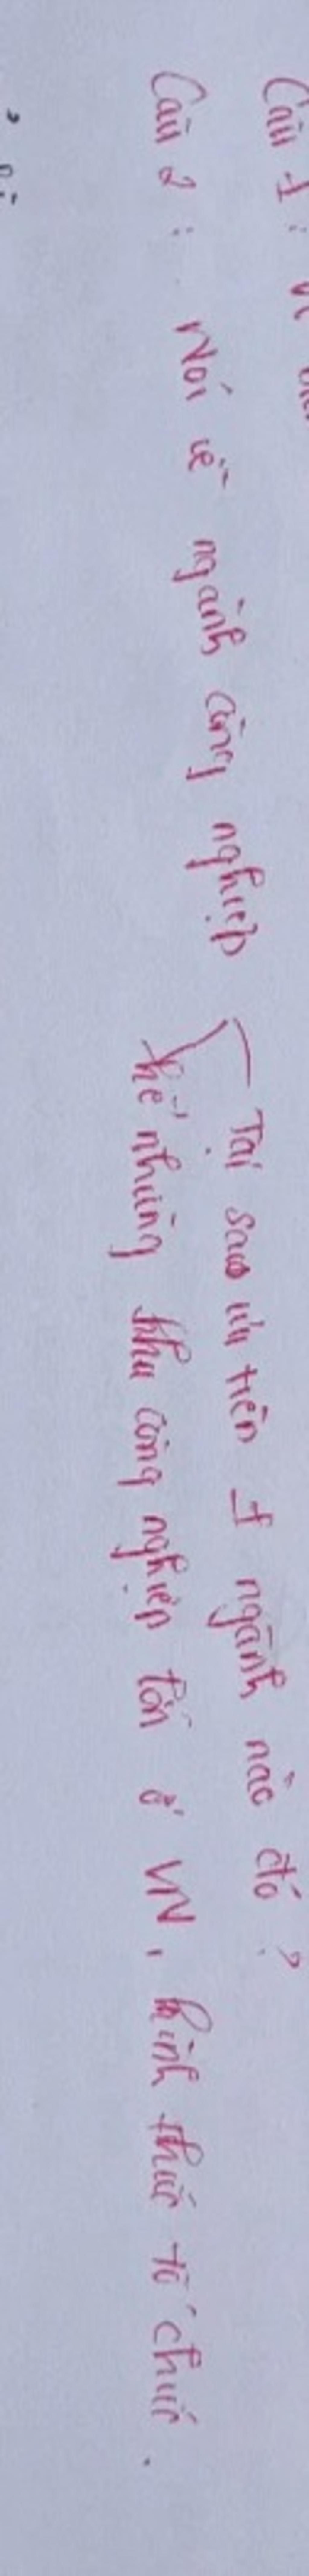 Câu 1 :
Câu 2 : Nói về ngành công nghiệp
Tại sao ưu tiên 1 ngành nào đó ?
kể những khu công nghiệp lớn ở VN, hình thức tổ chức.